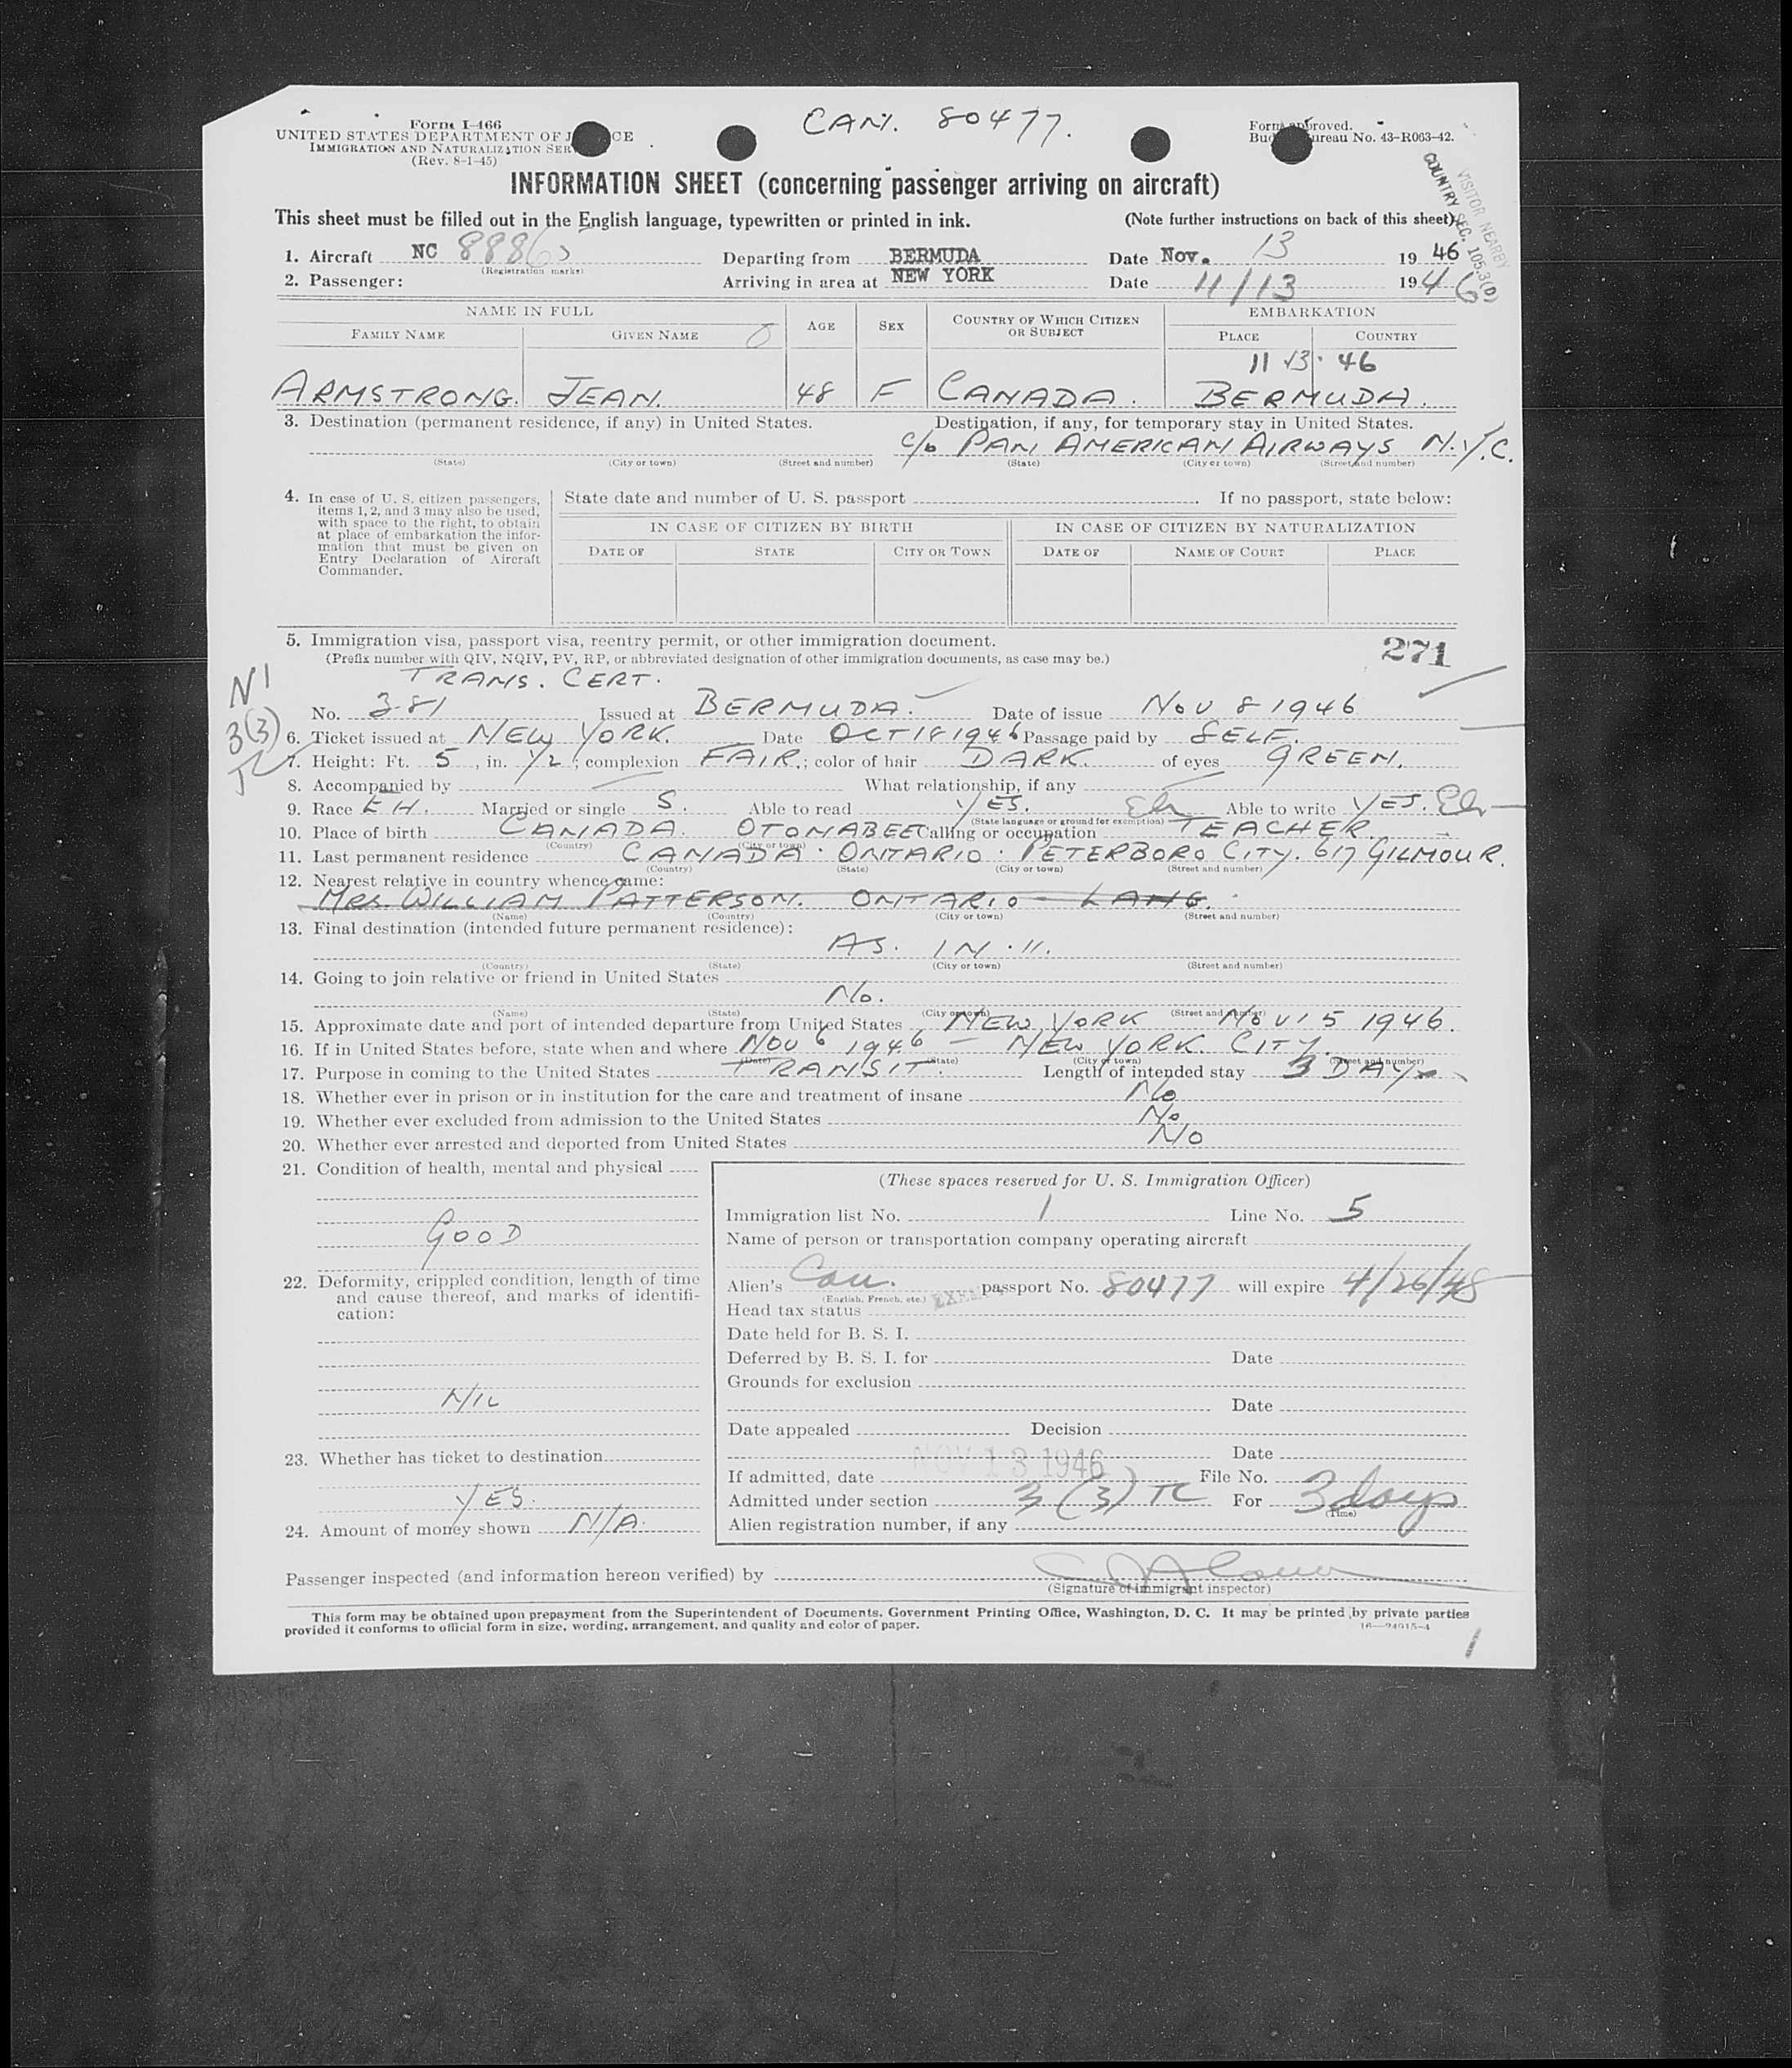 CAN. 80477.
Form I-466
UNITED STATES DEPARTMENT OF J CE
IMMIGRATION AND NATURALIZATION SER
(Rev. 8-1-45)
Form approved.
Bud ureau No. 43-R063-42.
VISITOR NEARBY
COUNTRY SEC. 105.3(D)
INFORMATION SHEET (concerning passenger arriving on aircraft)
This sheet must be filled out in the English language, typewritten or printed in ink. (Note further instructions on back of this sheet)
1. Aircraft NC Departing from BERMUDA Date Nov. 13 19 46
(Registration marks)
2. Passenger: Arriving in area at NEW YORK Date 11/13 1946
NAME IN FULL AGE SEX COUNTRY OF WHICH CITIZEN OR SUBJECT EMBARKATION
FAMILY NAME GIVEN NAME PLACE COUNTRY
11 13 · 46
ARMSTRONG. JEAN. 48 F CANADA. BERMUDA.
3. Destination (permanent residence, if any) in United States. Destination, if any, for temporary stay in United States.
c/o PAN AMERICAN AIRWAYS N.Y.C.
(State) (City or town) (Street and number) (State) (City or town) (Street and number)
4. In case of U. S. citizen passengers,
items 1, 2, and 3 may also be used,
with space to the right, to obtain
at place of embarkation the infor-
mation that must be given on
Entry Declaration of Aircraft
Commander.
State date and number of U. S. passport . If no passport, state below:
IN CASE OF CITIZEN BY BIRTH IN CASE OF CITIZEN BY NATURALIZATION
DATE OF STATE CITY OR TOWN DATE OF NAME OF COURT PLACE
5. Immigration visa, passport visa, reentry permit, or other immigration document. 271
(Prefix number with QIV, NQIV, PV, RP, or abbreviated designation of other immigration documents, as case may be.)
TRANS. CERT.
No. 381 Issued at BERMUDA. Date of issue NOV 8 1946
3(3)
6. Ticket issued at NEW YORK. Date OCT 18 1946 Passage paid by SELF.
7. Height: Ft. 5, in. 1/2; complexion FAIR.; color of hair DARK. of eyes GREEN.
8. Accompanied by What relationship, if any
9. Race EH. Married or single S. Able to read YES. Able to write YES.
(State language or ground for exemption)
10. Place of birth CANADA. OTONABEE Calling or occupation TEACHER.
(Country) (City or town)
11. Last permanent residence CANADA. ONTARIO. PETERBORO CITY. 617 GILMOUR.
(Country) (State) (City or town) (Street and number)
12. Nearest relative in country whence came:
MRS. WILLIAM PATTERSON. ONTARIO - LANG.
(Name) (Country) (City or town) (Street and number)
13. Final destination (intended future permanent residence):
AS. IN. 11.
(Country) (State) (City or town) (Street and number)
14. Going to join relative or friend in United States
No.
(Name) (State) (City or town) (Street and number)
15. Approximate date and port of intended departure from United States NEW YORK NOV 15 1946.
16. If in United States before, state when and where NOV 6 1946 - NEW YORK. CITY.
(Date) (State) (City or town) (Street and number)
17. Purpose in coming to the United States TRANSIT. Length of intended stay 3 DAYS
18. Whether ever in prison or in institution for the care and treatment of insane No
19. Whether ever excluded from admission to the United States No
20. Whether ever arrested and deported from United States No
21. Condition of health, mental and physical
GOOD
22. Deformity, crippled condition, length of time
and cause thereof, and marks of identifi-
cation:
NIL
23. Whether has ticket to destination
YES.
24. Amount of money shown N/A.
(These spaces reserved for U. S. Immigration Officer)
Immigration list No. 1 Line No. 5
Name of person or transportation company operating aircraft
Alien's Can. passport No. 80477 will expire 4/26/48
(English, French, etc.)
Head tax status
Date held for B. S. I.
Deferred by B. S. I. for Date
Grounds for exclusion
Date
Date appealed Decision
Date
If admitted, date NOV 13 1946 File No.
Admitted under section 3 (3) TC For 3 days
(Time)
Alien registration number, if any
Passenger inspected (and information hereon verified) by
(Signature of immigrant inspector)
This form may be obtained upon prepayment from the Superintendent of Documents, Government Printing Office, Washington, D. C. It may be printed by private parties
provided it conforms to official form in size, wording, arrangement, and quality and color of paper.
16—24015-4